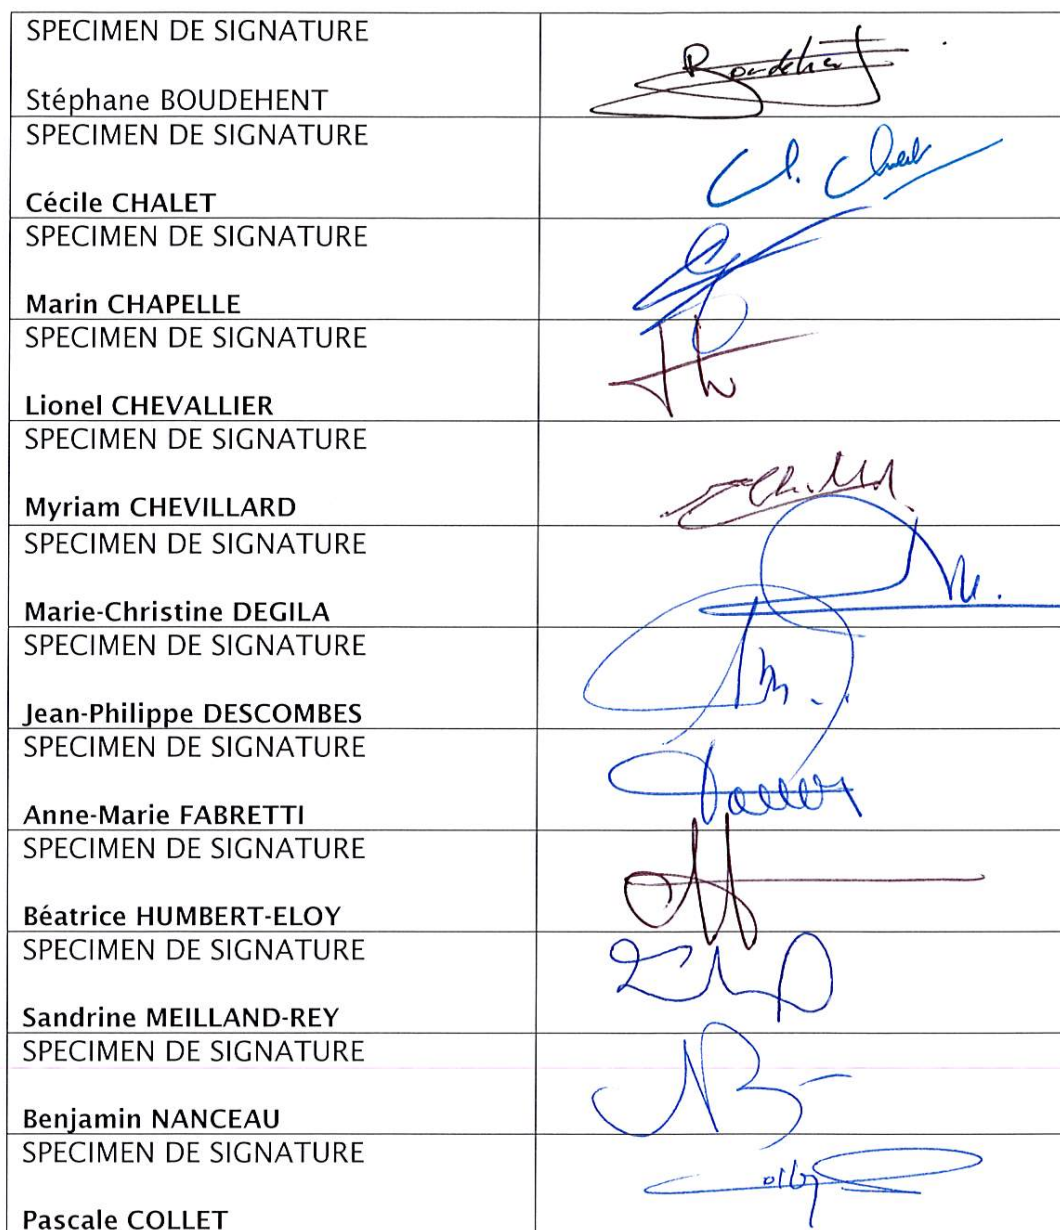 SPECIMEN DE SIGNATURE
Boudehent
Stéphane BOUDEHENT
SPECIMEN DE SIGNATURE
Cécile CHALET
SPECIMEN DE SIGNATURE
Marin CHAPELLE
SPECIMEN DE SIGNATURE
Lionel CHEVALLIER
SPECIMEN DE SIGNATURE
Myriam CHEVILLARD
SPECIMEN DE SIGNATURE
Marie-Christine DEGILA
SPECIMEN DE SIGNATURE
Jean-Philippe DESCOMBES
SPECIMEN DE SIGNATURE
Anne-Marie FABRETTI
SPECIMEN DE SIGNATURE
Béatrice HUMBERT-ELOY
SPECIMEN DE SIGNATURE
Sandrine MEILLAND-REY
SPECIMEN DE SIGNATURE
Benjamin NANCEAU
SPECIMEN DE SIGNATURE
Pascale COLLET